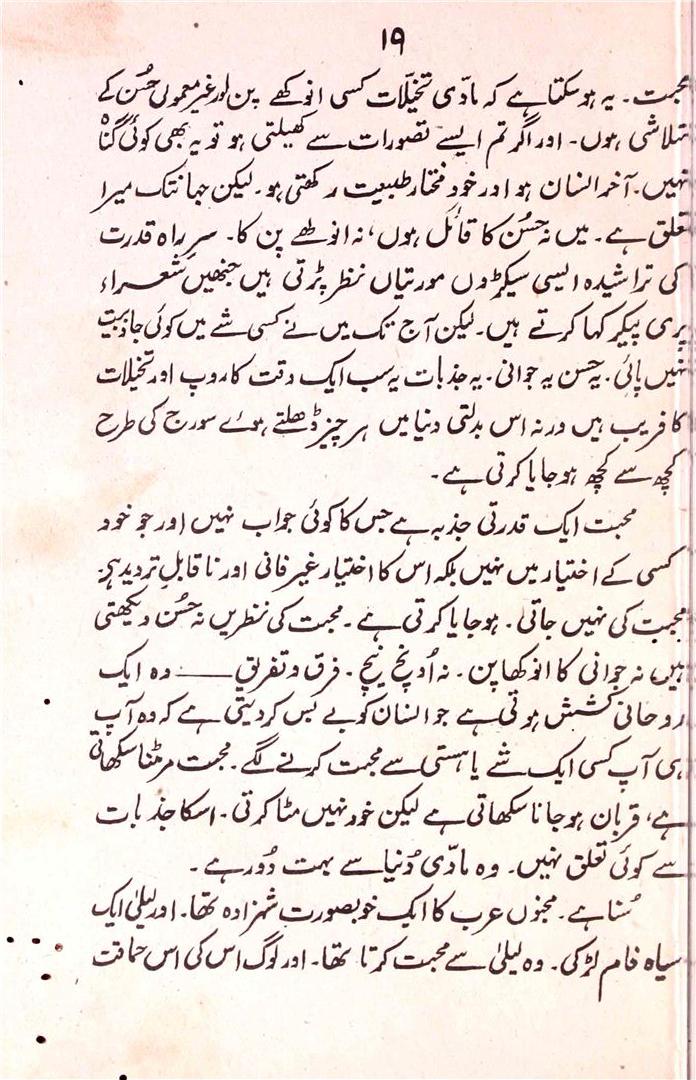 ۱۹
محبت۔ یہ ہو سکتا ہے کہ مادّی تخیّلات کسی انوکھے پن اور غیر معمولی حُسن کے
متلاشی ہوں۔ اور اگر تم ایسے تصورات سے کھیلتی ہو تو یہ بھی کوئی گناہ
نہیں۔ آخر انسان ہو اور خود مختار طبیعت رکھتی ہو۔ لیکن جہانتک میرا
تعلق ہے۔ میں نہ حُسن کا قائل ہوں، نہ انوکھے پن کا۔ سرِ راہ قدرت
کی تراشیدہ ایسی سیکڑوں مورتیاں نظر پڑتی ہیں جنھیں شعراء
پری پیکر کہا کرتے ہیں۔ لیکن آج تک میں نے کسی شے میں کوئی جاذبیت
نہیں پائی۔ یہ حسن یہ جوانی۔ یہ جذبات یہ سب ایک وقت کا روپ اور تخیلات
کا فریب ہیں ورنہ اس بدلتی دنیا میں ہر چیز ڈھلتے ہوئے سورج کی طرح
کچھ سے کچھ ہو جایا کرتی ہے۔
محبت ایک قدرتی جذبہ ہے جس کا کوئی جواب نہیں اور جو خود
کسی کے اختیار میں نہیں بلکہ اس کا اختیار غیر فانی اور ناقابلِ تردید ہے۔
محبت کی نہیں جاتی۔ ہو جایا کرتی ہے۔ محبت کی نظریں نہ حُسن دیکھتی
ہیں نہ جوانی کا انوکھا پن۔ نہ اُونچ نیچ۔ فرق و تفریق ــــــ وہ ایک
روحانی کشش ہوتی ہے جو انسان کو بے بس کر دیتی ہے کہ وہ آپ
ہی آپ کسی ایک شے یا ہستی سے محبت کرنے لگے۔ محبت مر مٹنا سکھاتی
ہے، قربان ہو جانا سکھاتی ہے لیکن خود نہیں مٹا کرتی۔ اسکا جذبات
سے کوئی تعلق نہیں۔ وہ مادّی دُنیا سے بہت دُور ہے۔
سُنا ہے۔ مجنوں عرب کا ایک خوبصورت شہزادہ تھا۔ اور لیلیٰ ایک
سیاہ فام لڑکی۔ وہ لیلیٰ سے محبت کرتا تھا۔ اور لوگ اس کی اس حماقت